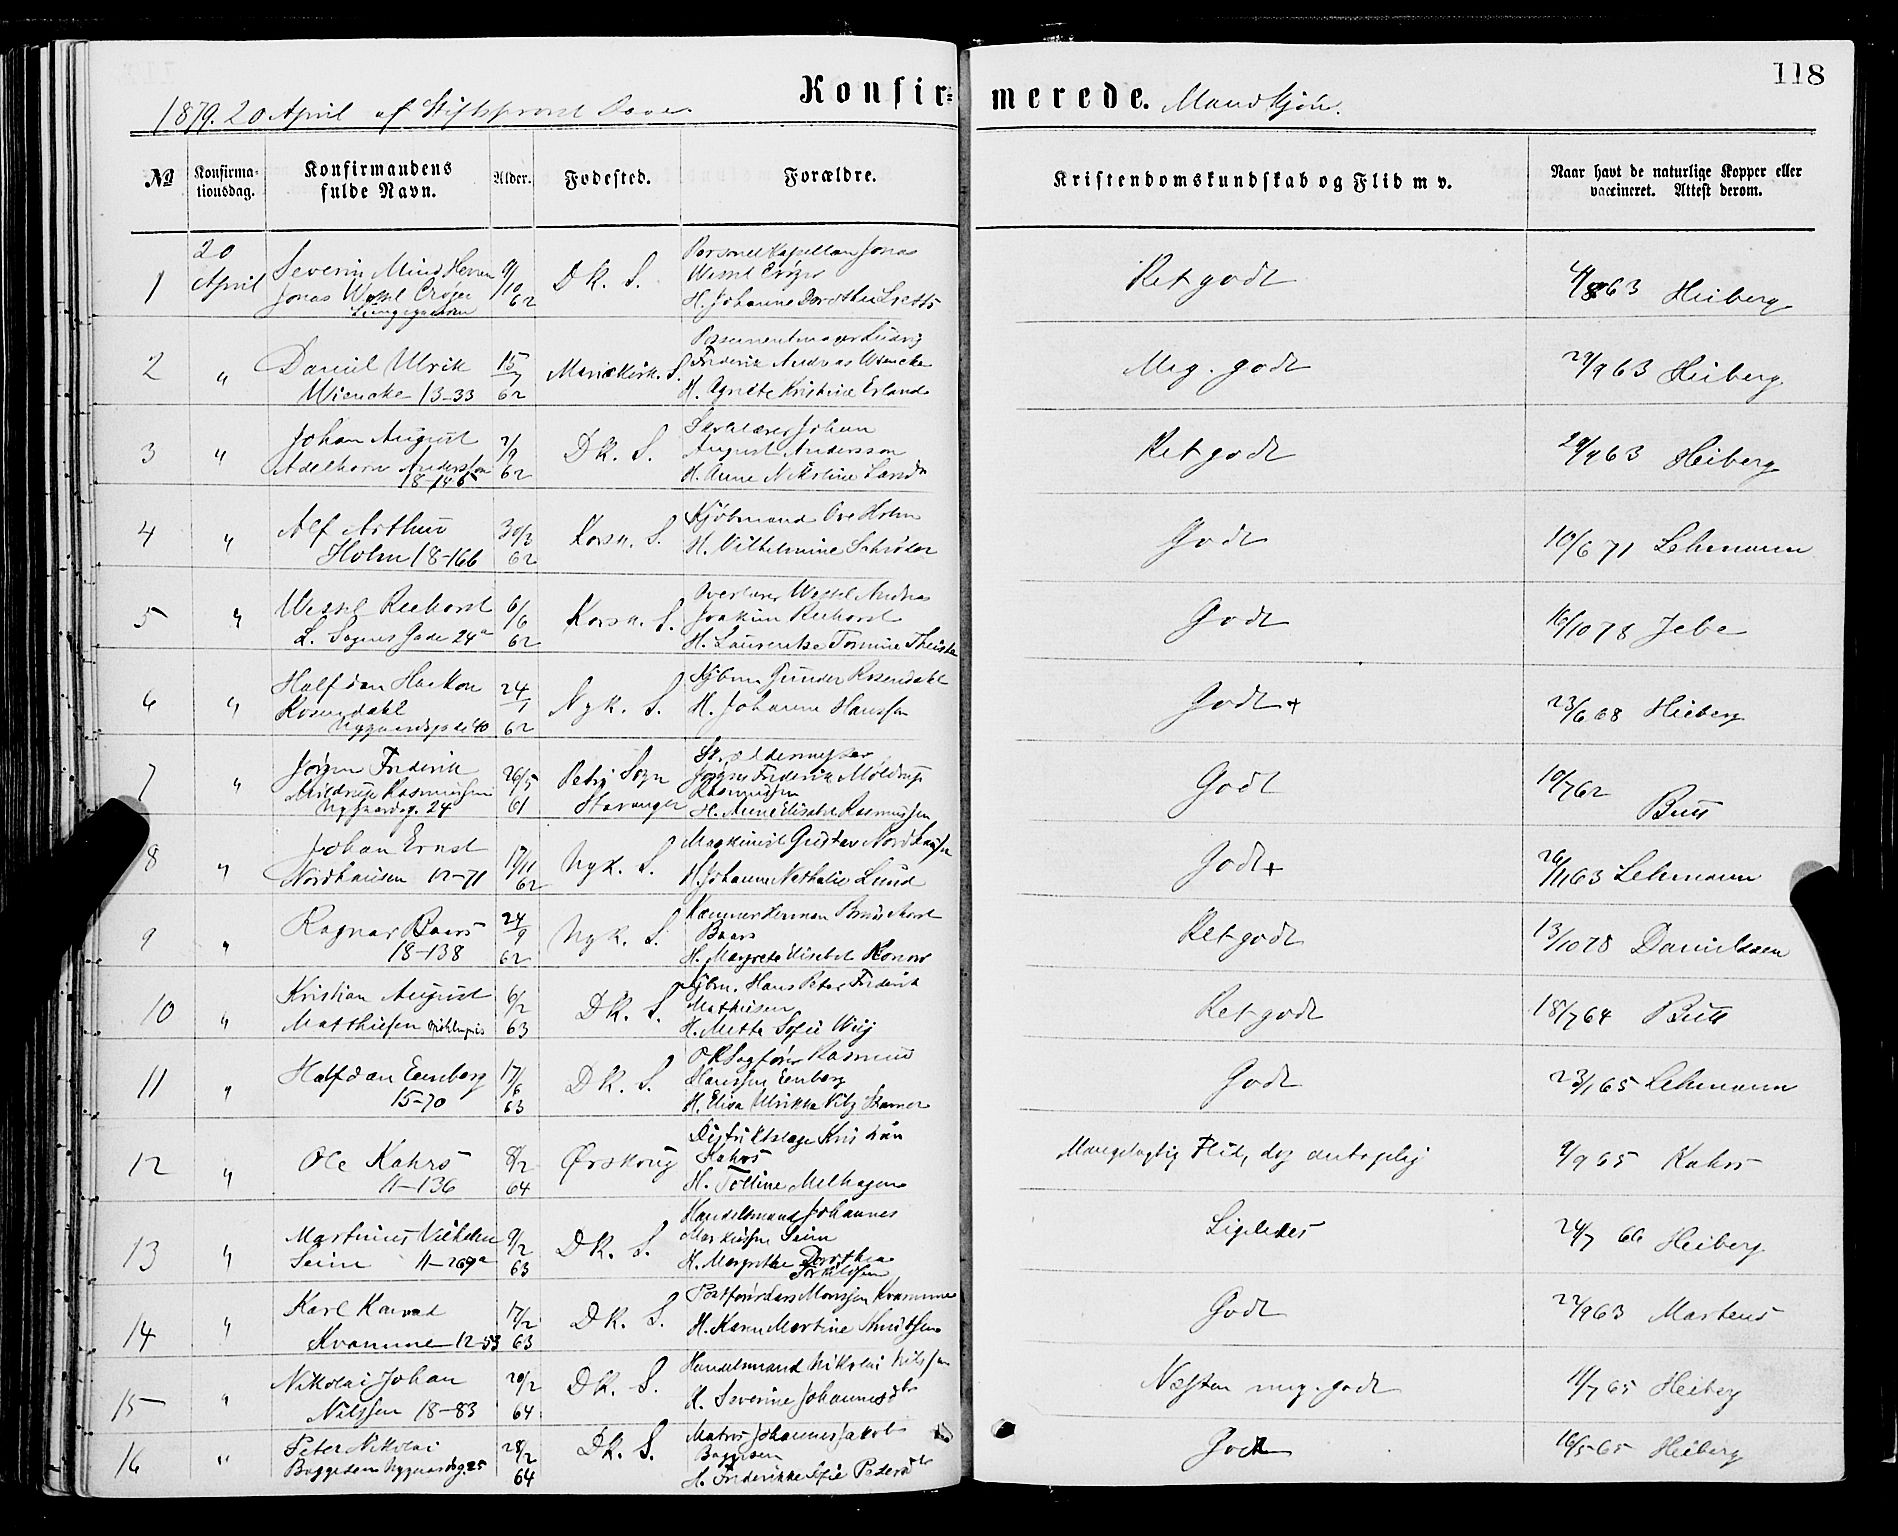 118
Konfirmerede. Mandkjön.
1879. 20 April af Stiftsprovst
№
Konfirmationsdag.
Konfirmandens fulde Navn.
Alder.
Fodested.
Forældre.
Kristendomskundskab og Flid m v.
Naar havt de naturlige Kopper eller vaccineret. Attest derom.
1 20 April Severin Jonas Wessel Crøger 9/10 62 D k. S. Personel Kapellan Jonas Wessel Crøger H. Johanne Dorothea Ret godt 63 Heiberg
2 " Daniel Ulrik Wiencke 13-33 15/7 62 Mariekirk. S. Ludvig Frederik Andreas Wiencke H. Agnete Kristine Erland Meg. godt 29/9 63 Heiberg
3 " Johan August Andersson 18-146 62 Dk. S. Johan August Andersson H. Anne Ret godt 29/9 63 Heiberg
4 " Alf Arthur Holm 18-166 30/3 62 Korsk. S. Kjöbmand Ove Holm H. Vilhelmine Schröder Godt 10/6 71 Lehmann
5 " Wessel Reehorst L. Sognes Gade 24a 6/6 62 Korsk. S. Overlærer Wessel Andreas Joakim Reehorst H. Laurentze Godt 16/10 78 Jebe
6 " Halfdan Haakon Rosendahl Nygaardsgade 40 24/1 62 Nyk. S. Kjöbm Gunder Rosendahl H. Johanne Hanssen Godt + 23/6 68 Heiberg
7 " Jörgen Frederik Möldrup Rasmussen Nygaardsg. 24 26/5 61 Petri Sogn Stavanger Jörgen Frederik Möldrup Rasmussen H. Anne Elisabet Rasmussen Godt 10/7 62 Bull
8 " Johan Ernst Nordhausen 12-71 17/11 62 Nyk. S. Maskinist Gustav Nordhausen H. Johanne Nathalie Lund Godt + 26/11 63 Lehmann
9 " Ragnar Baars 18-138 24/9 62 Nyk. S. Kæmner Herman Baars H. Margrete Elisabet Konow Ret godt 13/10 78 Danielssen
10 " Kristian August Matthiesen 6/2 63 Dk. S. Kjöbm. Hans Peter Frederik Mathiesen H. Mette Sofie Wiig Ret godt 18/7 64 Bull
11 " Halfdan Eenberg 15-70 17/6 63 Dk. S. O R Sagförer Rasmus Hanssen Eenberg H. Elisa Ulrikke Godt 23/1 65 Lehmann
12 " Ole Kahrs 11-136 8/2 64 Ørskoug Distriktslæge Kristian Kahrs H. Melhagen Mangelagtig Flid, dog antagelig 9/9 65 Kahrs
13 " Martinus Vilhelm Seim 11-269a 9/2 63 Dk. S. Handelsmand Johannes Seim H. Margrethe Dorothea Torkildsen Ligeledes 24/7 66 Heiberg
14 " Karl Konrad Kvamme 12-53 17/2 63 Dk. S. Lars Monsen Kvamme H. Karen Martine Knudtsen Godt 22/9 63 Martens
15 " Nikolai Johan Nilssen 18-83 20/2 64 Dk. S. Handelsmand Nikolai Nilssen H. Severine Johannesdtr Næsten meg. godt 11/7 65 Heiberg
16 " Peter Nikolai Baggesen Nygaardsg. 25 28/2 64 Dk. S. Matros Johannes Jakob Baggesen H. Frederikke Sofie Pedersdtr Godt 16/5 65 Heiberg